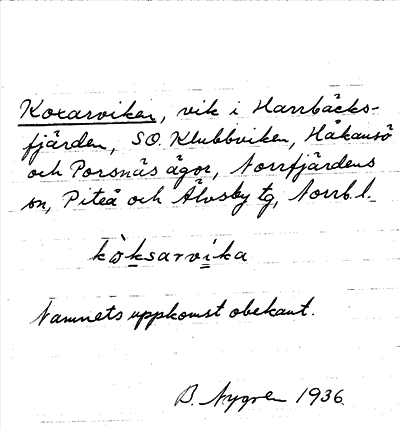 Koxarviken, vik i Harrbäcks-
fjärden, SO. Klubbviken, Håkansö
och Porsnäs ägor, Norrfjärdens
sn, Piteå och Älvsby tg, Norrb. l.
kòksarvika
Namnets uppkomst obekant.
B. Nygren 1936.